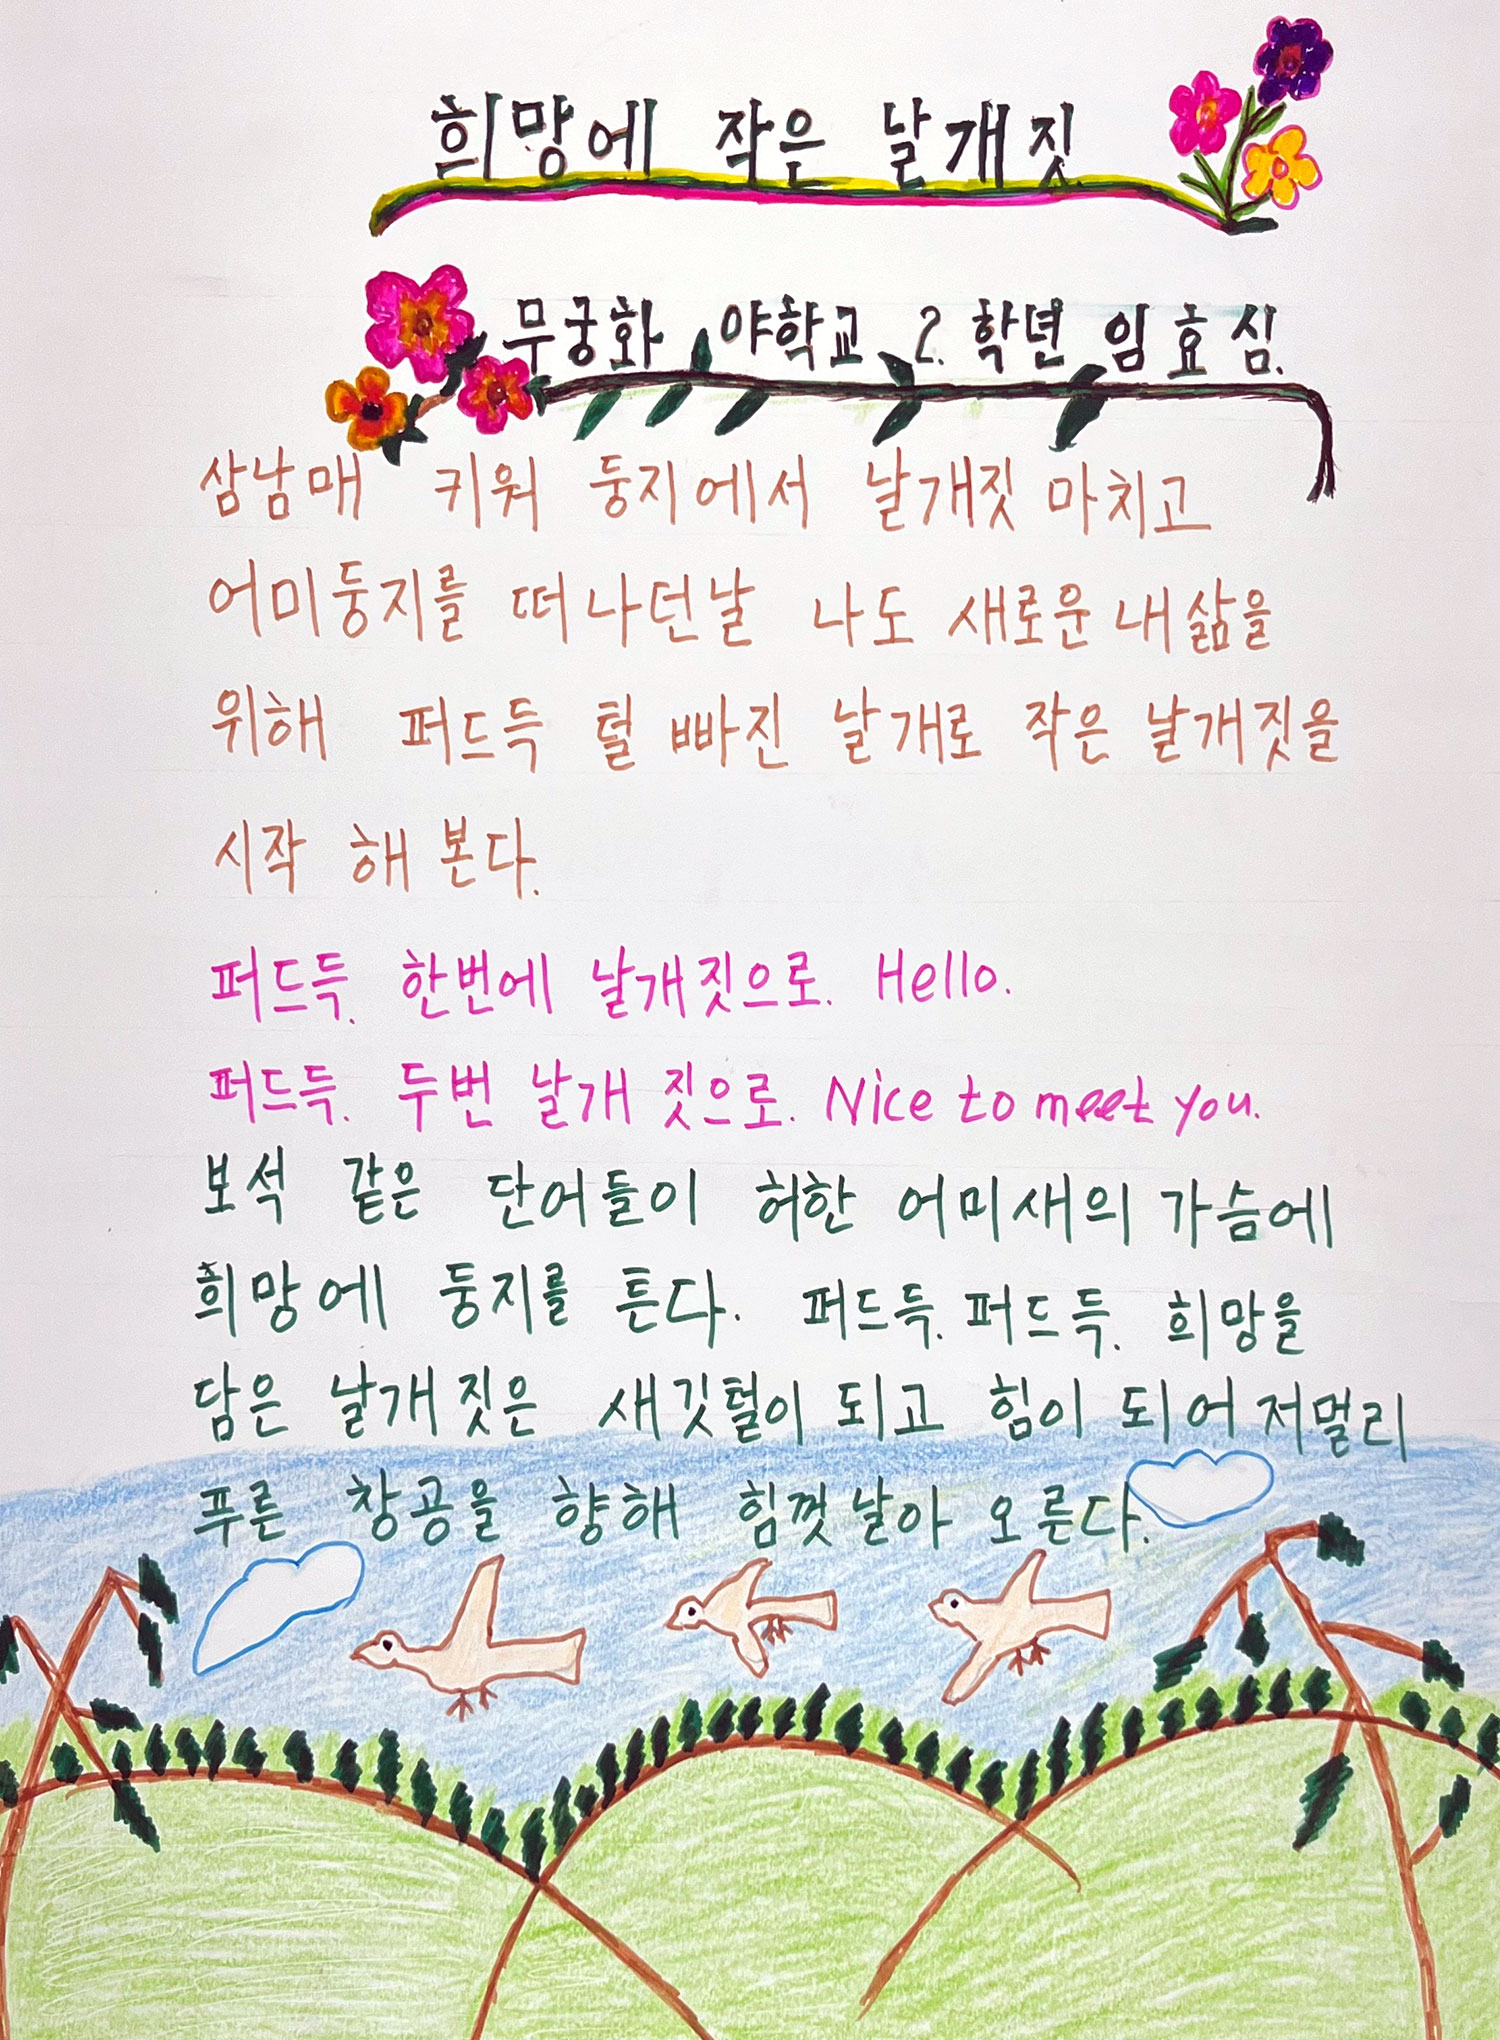 희망에 작은 날개짓
무궁화 야학교 2. 학년 임효심.
삼남매 키워 둥지에서 날개짓 마치고
어미둥지를 떠나던날 나도 새로운 내삶을
위해 퍼드득 털 빠진 날개로 작은 날개짓을
시작 해 본다.
퍼드득. 한번에 날개짓으로. Hello.
퍼드득. 두번 날개 짓으로. Nice to meet you.
보석 같은 단어들이 허한 어미새의 가슴에
희망에 둥지를 튼다. 퍼드득. 퍼드득. 희망을
담은 날개짓은 새깃털이 되고 힘이 되어 저멀리
푸른 창공을 향해 힘껏 날아 오른다.